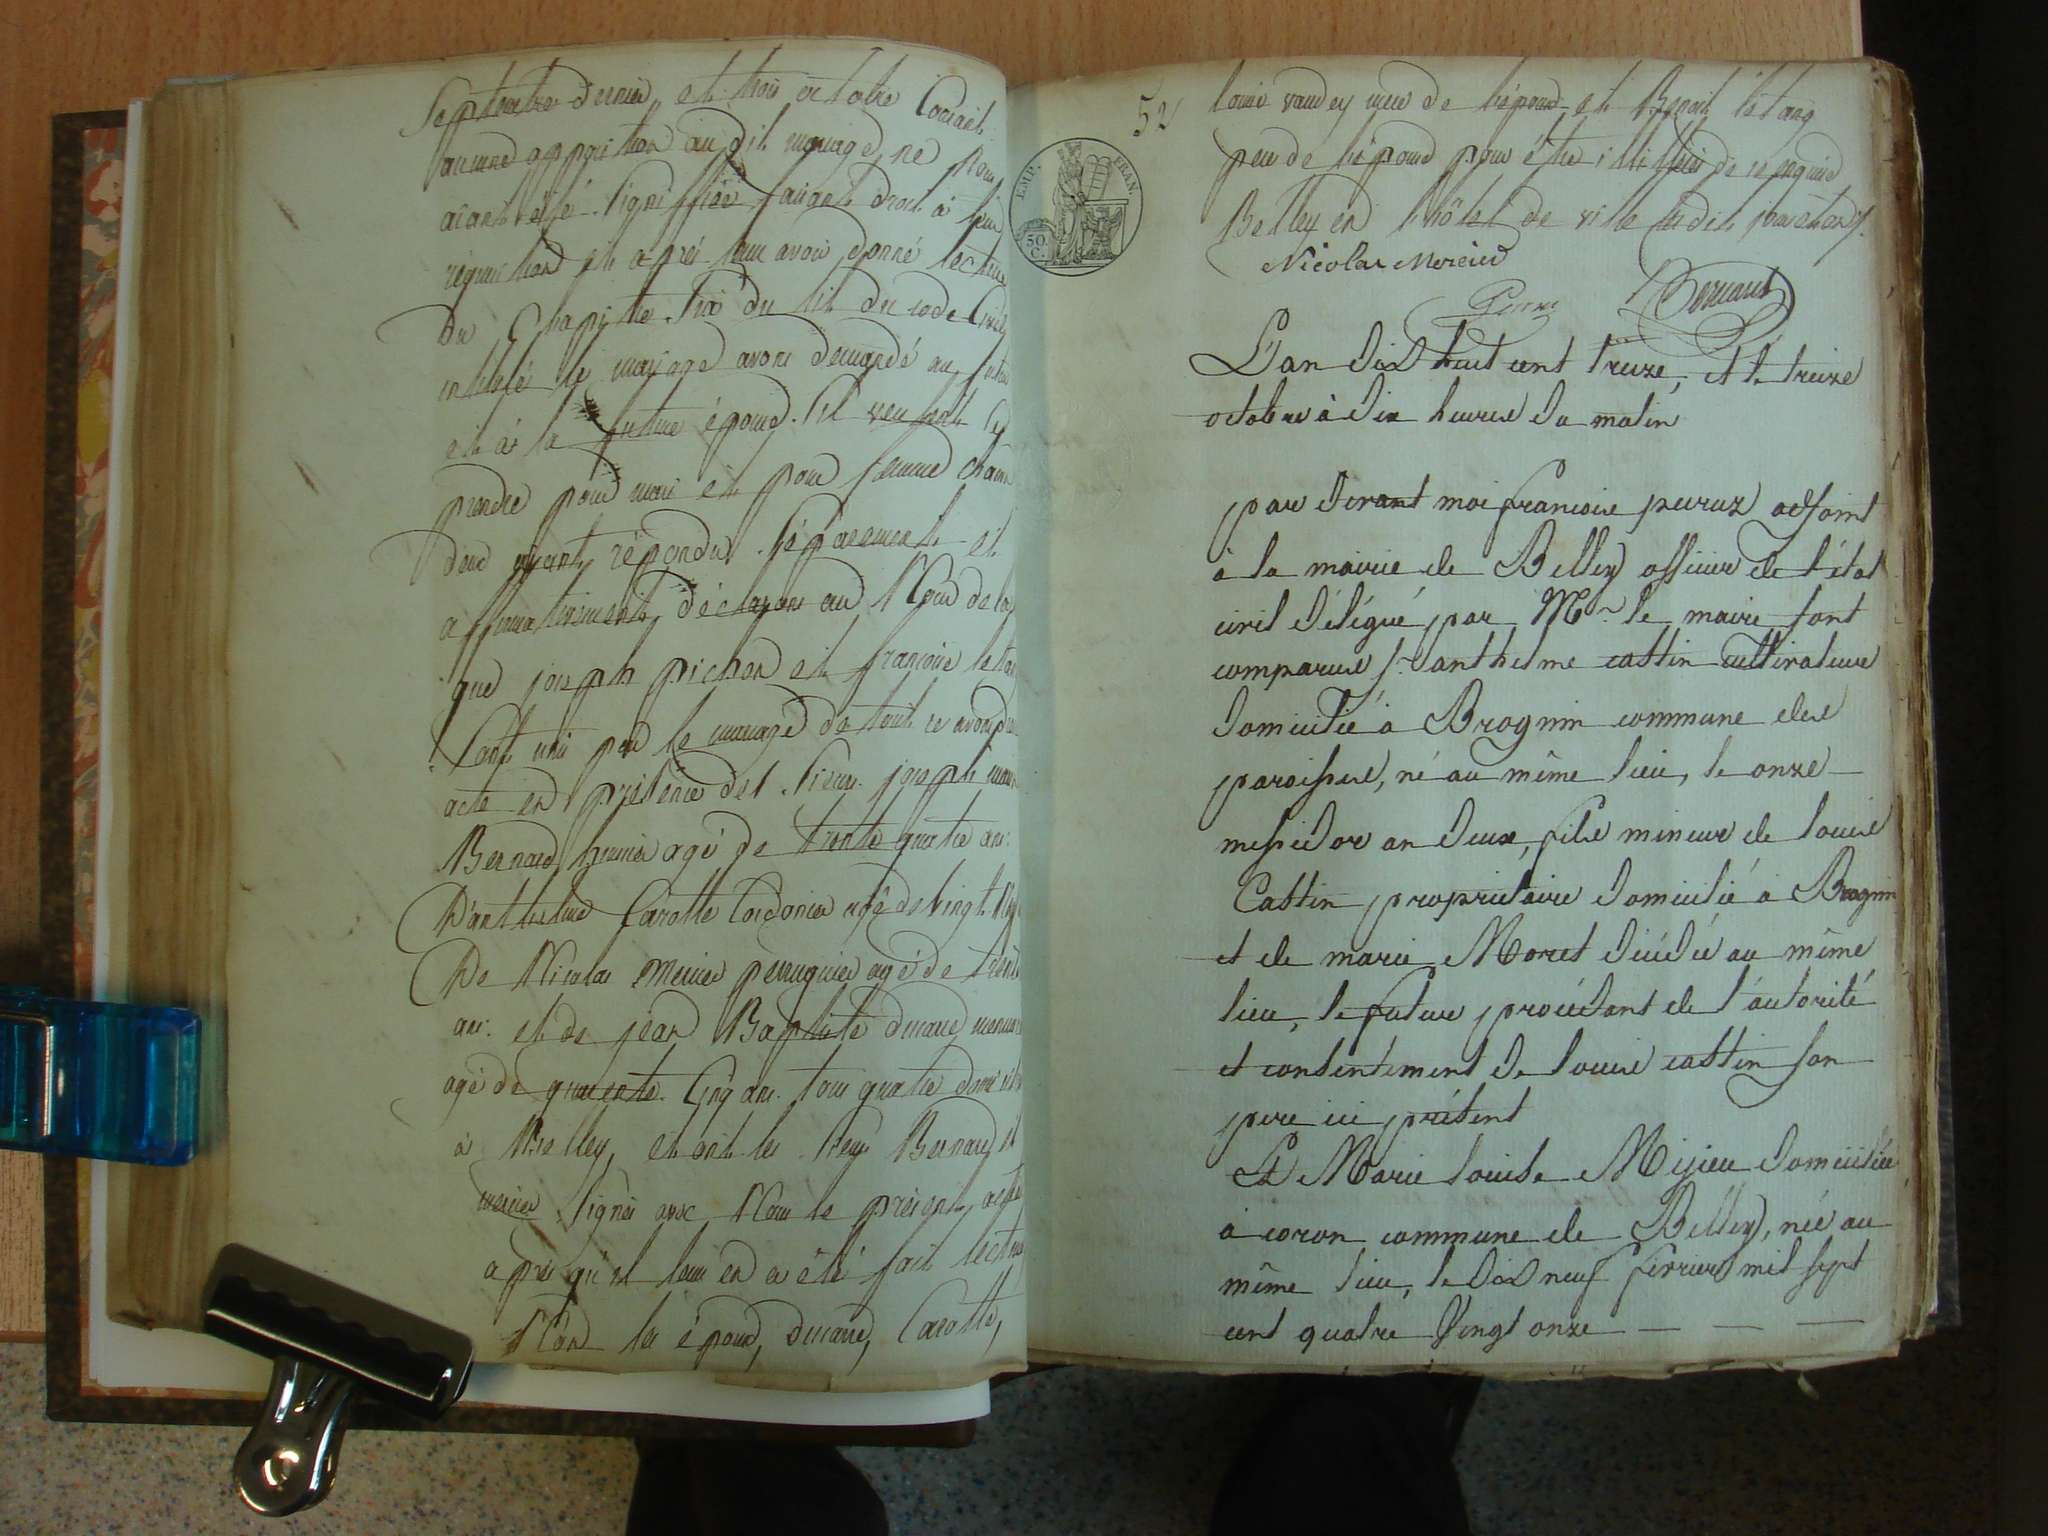 Septembre dernier et trois octobre Courant
aucune opposition au dit mariage, ne nous
aiant été signiffiée faisant droit à leur
requisition et après leur avoir donné lecture
du Chapitre Six du tit. du code Civil
intitulé le mariage avons demandé au futur
et à la future épouse. S'il veu lent se
prendre pour mari et pour femme chacun
d'eux ayant répondu séparement et
affirmativement, déclarons au Nom de la loi
que joseph pichon et françoise letan
Sont unis par le mariage de tout ce avons
acte en présence des sieurs joseph
Bernard huissier agé de trente quatre ans
D'anthelme Carotte Cordonier agé de vingt
De Nicolas Mercier perruquier agé de trente
ans et de jean Baptiste
agé de quarente Cinq ans. tous quatre domiciliés
à Belley, et ont les sieurs Bernard et
mercier signés avec Nous le présent acte
après qu'il leur en a été fait lecture
Non la épouse, Carotte,
52
EMP. FRAN.
50 C.
louise mere de l'epoux et Benoit létang
pere de l'épouse pour être illitterés de ce requis
Belley en l'hôtel de ville les dits jour et an
Nicolas Mercier
Bernard
L'an dix huit cent treize, et le treize
octobre à dix heures du matin
par devant moi francois peruz adjoint
à la mairie de Belley officier de l'état
civil délégué par Mr le maire sont
comparus sr anthelme cattin cultivateur
domicilié à Brognin commune des
paroisses, né au même lieu, le onze
messidor an deux, fils mineur de louis
Cattin proprietaire domicilié à Brognin
et de marie Moret décédée au même
lieu, le futur procédant de l'autorité
et consentement de louis cattin son
pere ici présent
Et Marie louise Mijieu domiciliée
à coron commune de Belley, née au
même lieu, le dix neuf fevrier mil sept
cent quatre Vingt onze